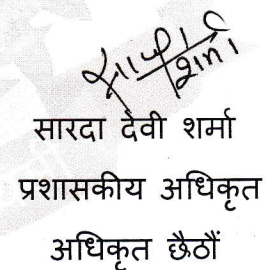 सारदा देवी शर्मा
प्रशासकीय अधिकृत
अधिकृत छैठौं